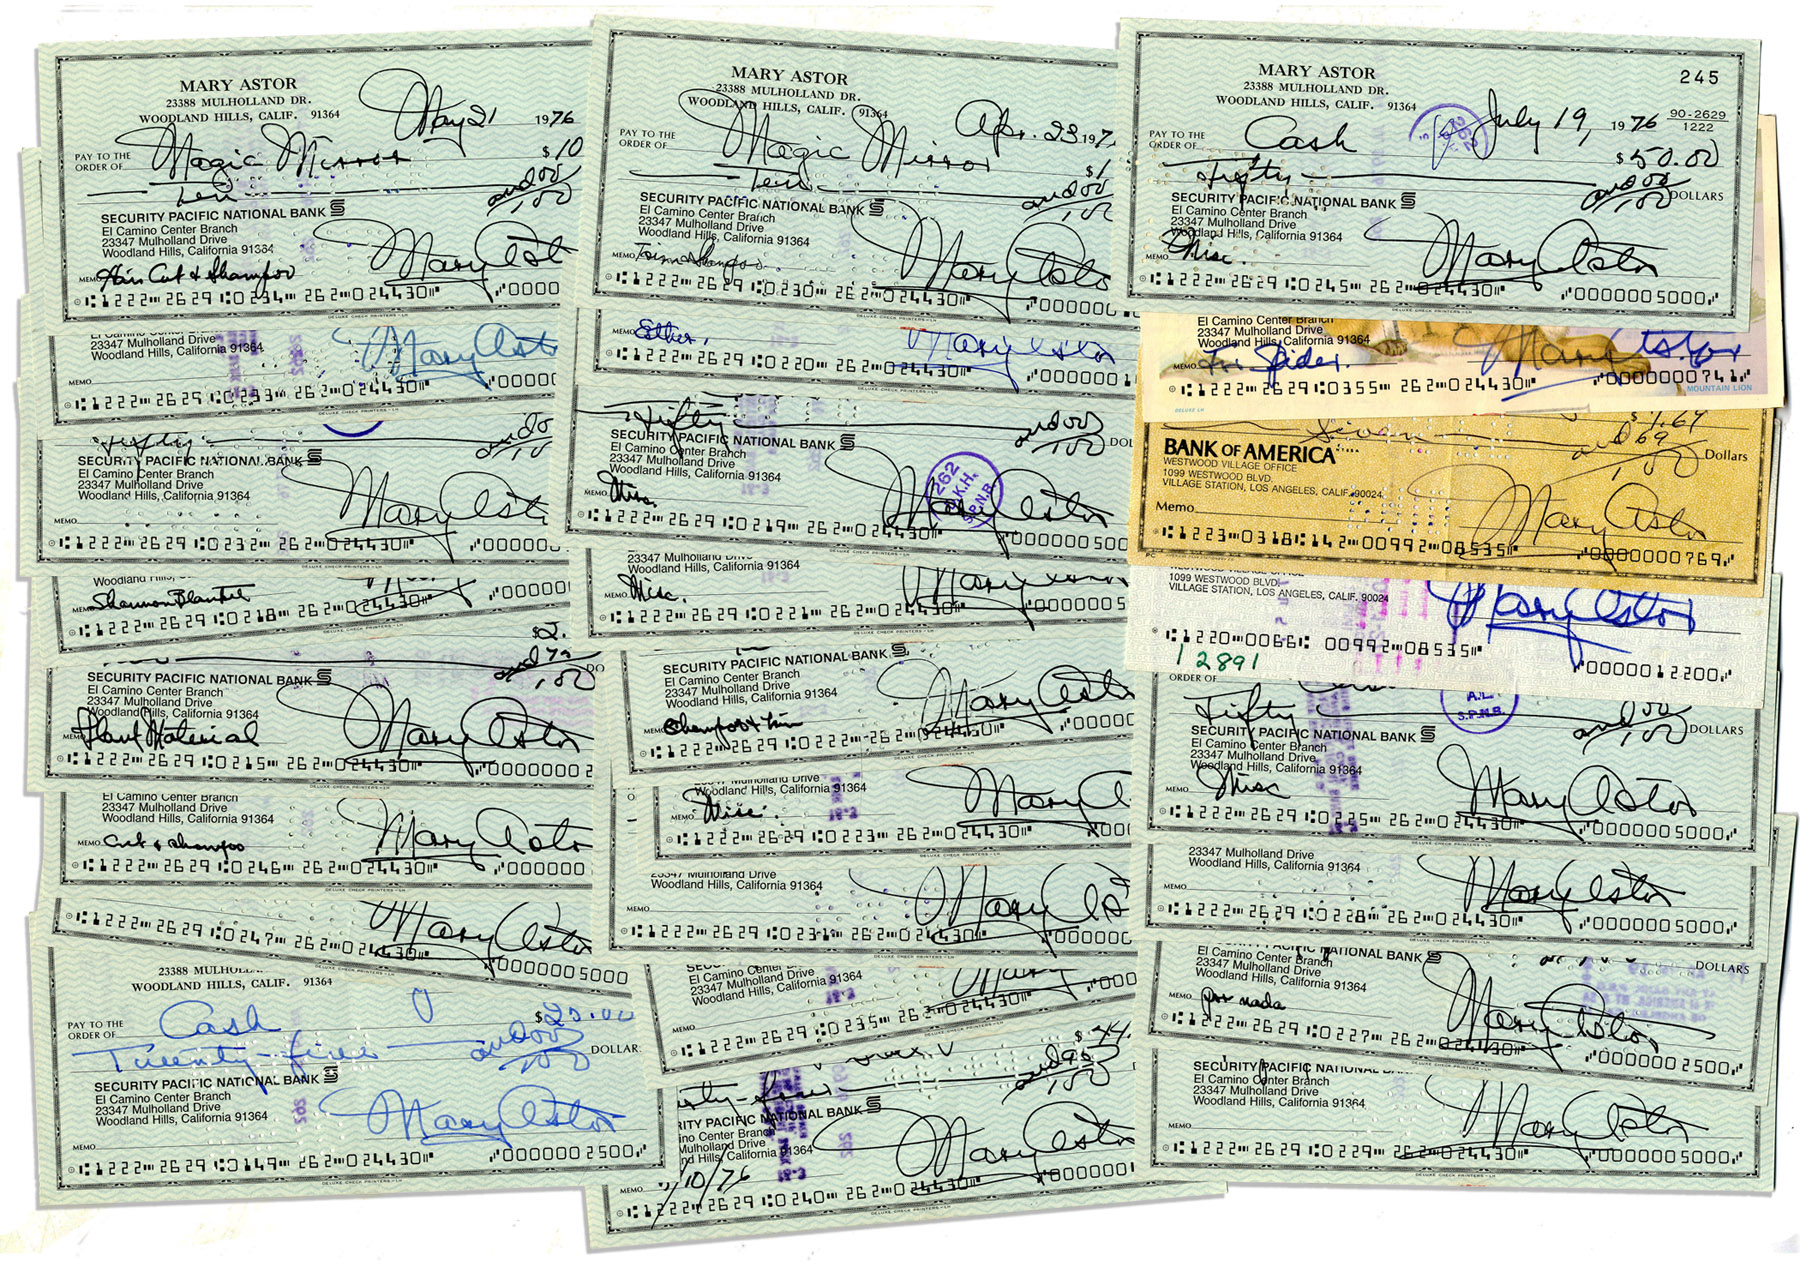 MARY ASTOR
23388 MULHOLLAND DR.
WOODLAND HILLS, CALIF. 91364
May 21 1976
PAY TO THE ORDER OF Magic Mirror $10
Ten and 00/100
SECURITY PACIFIC NATIONAL BANK
El Camino Center Branch
23347 Mulholland Drive
Woodland Hills, California 91364
MEMO Hair Cut & Shampoo Mary Ast
1222 2629 0234 262 024430 00000
DELUXE CHECK PRINTERS
El Camino Center Branch
23347 Mulholland Drive
Woodland Hills, California 91364
Mary Asto
MEMO
1222 2629 0233 262 024430
Fifty
SECURITY PACIFIC NATIONAL BANK
El Camino Center Branch
23347 Mulholland Drive
Woodland Hills, California 91364
MEMO
Mary Ast
1222 2629 0232 262 024430 00000
MEMO Shannon
1222 2629 0218 262 024430
SECURITY PACIFIC NATIONAL BANK
El Camino Center Branch
23347 Mulholland Drive
Woodland Hills, California 91364
MEMO Plant Material Mary Asto
1222 2629 0215 262 024430 0000002
El Camino Center Branch
23347 Mulholland Drive
Woodland Hills, California 91364
MEMO Cut & Shampoo Mary Asto
1222 2629 0246 262 024430 00000
Mary Asto
1222 2629 0247 262 024430 0000005000
23388 MULHOLL
WOODLAND HILLS, CALIF. 91364
PAY TO THE ORDER OF Cash $25.00
Twenty-five and 00/100 DOLLAR
SECURITY PACIFIC NATIONAL BANK
El Camino Center Branch
23347 Mulholland Drive
Woodland Hills, California 91364
MEMO Mary Astor
1222 2629 0149 262 024430 0000002500
MARY ASTOR
23388 MULHOLLAND DR.
WOODLAND HILLS, CALIF. 91364
Apr. 23 197
PAY TO THE ORDER OF Magic Mirror $1
Ten and 00/100
SECURITY PACIFIC NATIONAL BANK
El Camino Center Branch
23347 Mulholland Drive
Woodland Hills, California 91364
MEMO Trim & Shampoo Mary Asto
1222 2629 0230 262 024430 00000
MEMO Esther. Mary Astor
1222 2629 0220 262 024430 000000
Fifty and 00/100 DOL
SECURITY PACIFIC NATIONAL BANK
El Camino Center Branch
23347 Mulholland Drive
Woodland Hills, California 91364
262 S.P.N.B.
MEMO Misc. Mary Astor
1222 2629 0219 262 024430 00000500
23347 Mulholland Drive
Woodland Hills, California 91364
Misc.
1222 2629 0221 262 024430 000005000
SECURITY PACIFIC NATIONAL BANK
El Camino Center Branch
23347 Mulholland Drive
Woodland Hills, California 91364
MEMO Shampoo & Trim Mary Asto
1222 2629 0222 262 024430 00000
Mulholland Drive
Woodland Hills, California 91364
MEMO Misc. Mary A
1222 2629 0223 262 024430 00000
23347 Mulholland Drive
Woodland Hills, California 91364
MEMO Mary As
1222 2629 0231 262 024430 00000
El Camino Center Branch
23347 Mulholland Drive
Woodland Hills, California 91364
MEMO Mary
1222 2629 0235 262 024430 000
$44.
SECURITY PACIFIC NATIONAL BANK
MEMO 10/76 Mary Asto
1222 2629 0240 262 024430 000000
MARY ASTOR
23388 MULHOLLAND DR.
WOODLAND HILLS, CALIF. 91364
245
July 19, 1976
90-2629
1222
PAY TO THE ORDER OF Cash $50.00
Fifty and 00/100 DOLLARS
SECURITY PACIFIC NATIONAL BANK
El Camino Center Branch
23347 Mulholland Drive
Woodland Hills, California 91364
MEMO Misc. Mary Astor
1222 2629 0245 262 024430 0000005000
El Camino Center Branch
23347 Mulholland Drive
Woodland Hills, California 91364
MEMO For Spider. Mary Astor
1222 2629 0355 262 024430 0000000741
MOUNTAIN LION
Seven and 69/100 Dollars
BANK OF AMERICA
WESTWOOD VILLAGE OFFICE
1099 WESTWOOD BLVD.
VILLAGE STATION, LOS ANGELES, CALIF. 90024
Memo Mary Astor
1223 0318 142 00992 08535 0000000769
1099 WESTWOOD BLVD.
VILLAGE STATION, LOS ANGELES, CALIF. 90024
Mary Astor
1220 0066 00992 08535 0000012200
12891
ORDER OF
Fifty and 00/100 DOLLARS
A.L.
S.P.N.B.
SECURITY PACIFIC NATIONAL BANK
El Camino Center Branch
23347 Mulholland Drive
Woodland Hills, California 91364
MEMO Misc Mary Astor
1222 2629 0225 262 024430 0000005000
23347 Mulholland Drive
Woodland Hills, California 91364
MEMO Mary Astor
1222 2629 0228 262 024430 0000005000
DOLLARS
SECURITY PACIFIC NATIONAL BANK
El Camino Center Branch
23347 Mulholland Drive
Woodland Hills, California 91364
MEMO por nada Mary Astor
1222 2629 0227 262 024430 0000002500
SECURITY PACIFIC NATIONAL
El Camino Center Branch
23347 Mulholland Drive
Woodland Hills, California 91364
MEMO Mary Astor
1222 2629 0229 262 024430 0000005000